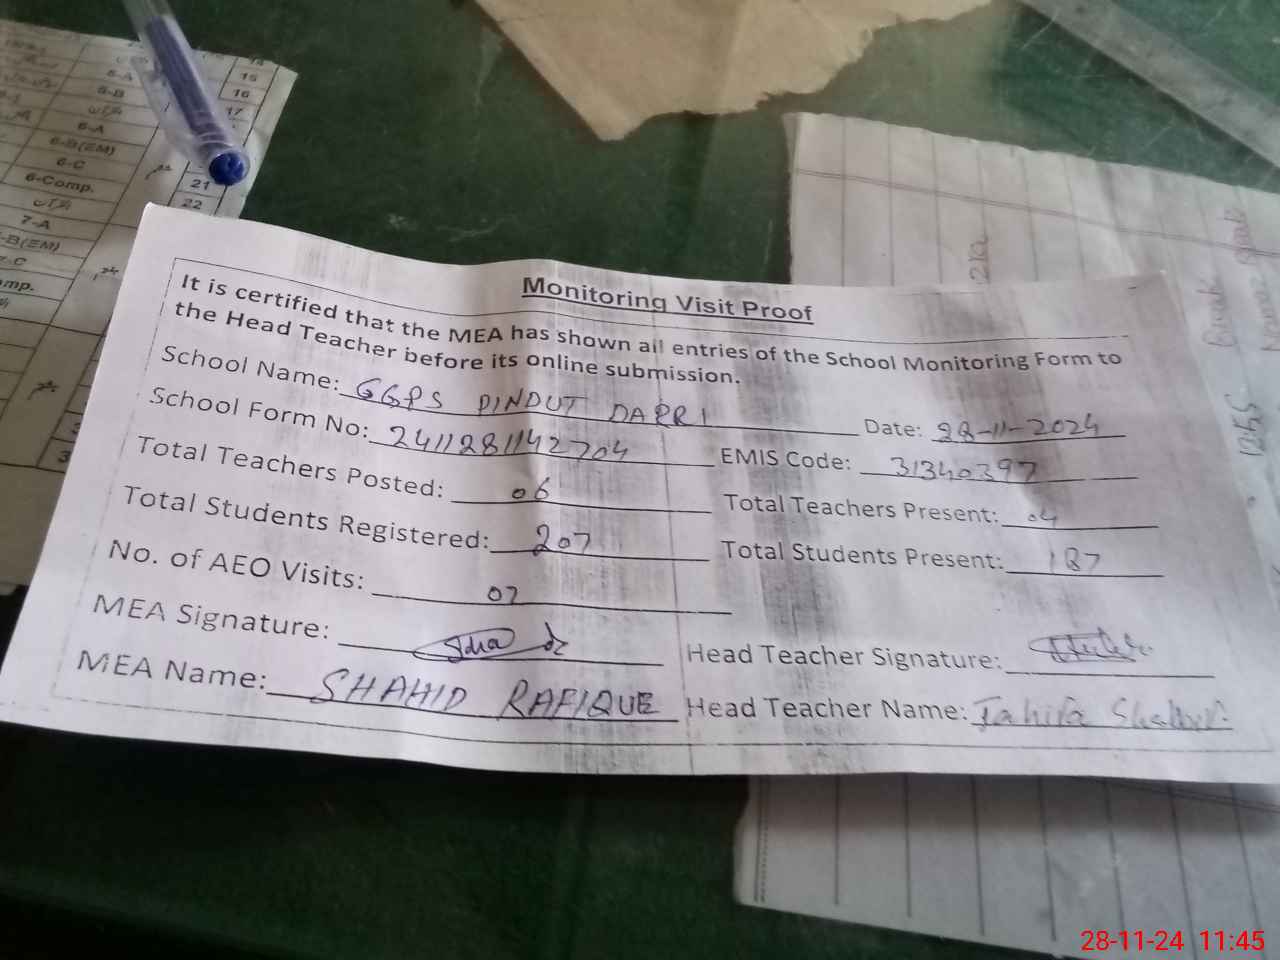 15
5-A
16
5-B
17
6-A
6-B(EM)
6-C
6-Comp.
21
22
7-A
-B(EM)
Monitoring Visit Proof
It is certified that the MEA has shown all entries of the School Monitoring Form to
the Head Teacher before its online submission.
School Name: GGPS PINDUT DARRI Date: 28-11-2024
School Form No: 2411281142704 EMIS Code: 31340397
Total Teachers Posted: 06 Total Teachers Present: 04
Total Students Registered: 207 Total Students Present: 187
No. of AEO Visits: 02
MEA Signature: Head Teacher Signature:
MEA Name: SHAHID RAFIQUE Head Teacher Name: Tahira
28-11-24 11:45